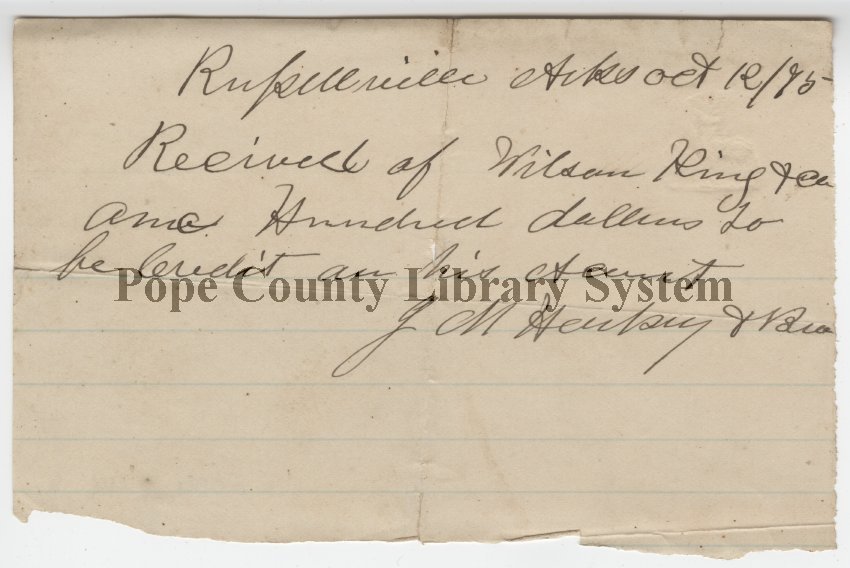 Russellville Arks Oct 12/95
Received of Wilson King & co
one Hundred dollers to
be Credit on his acount
Pope County Library System
J M Harkey & Bro